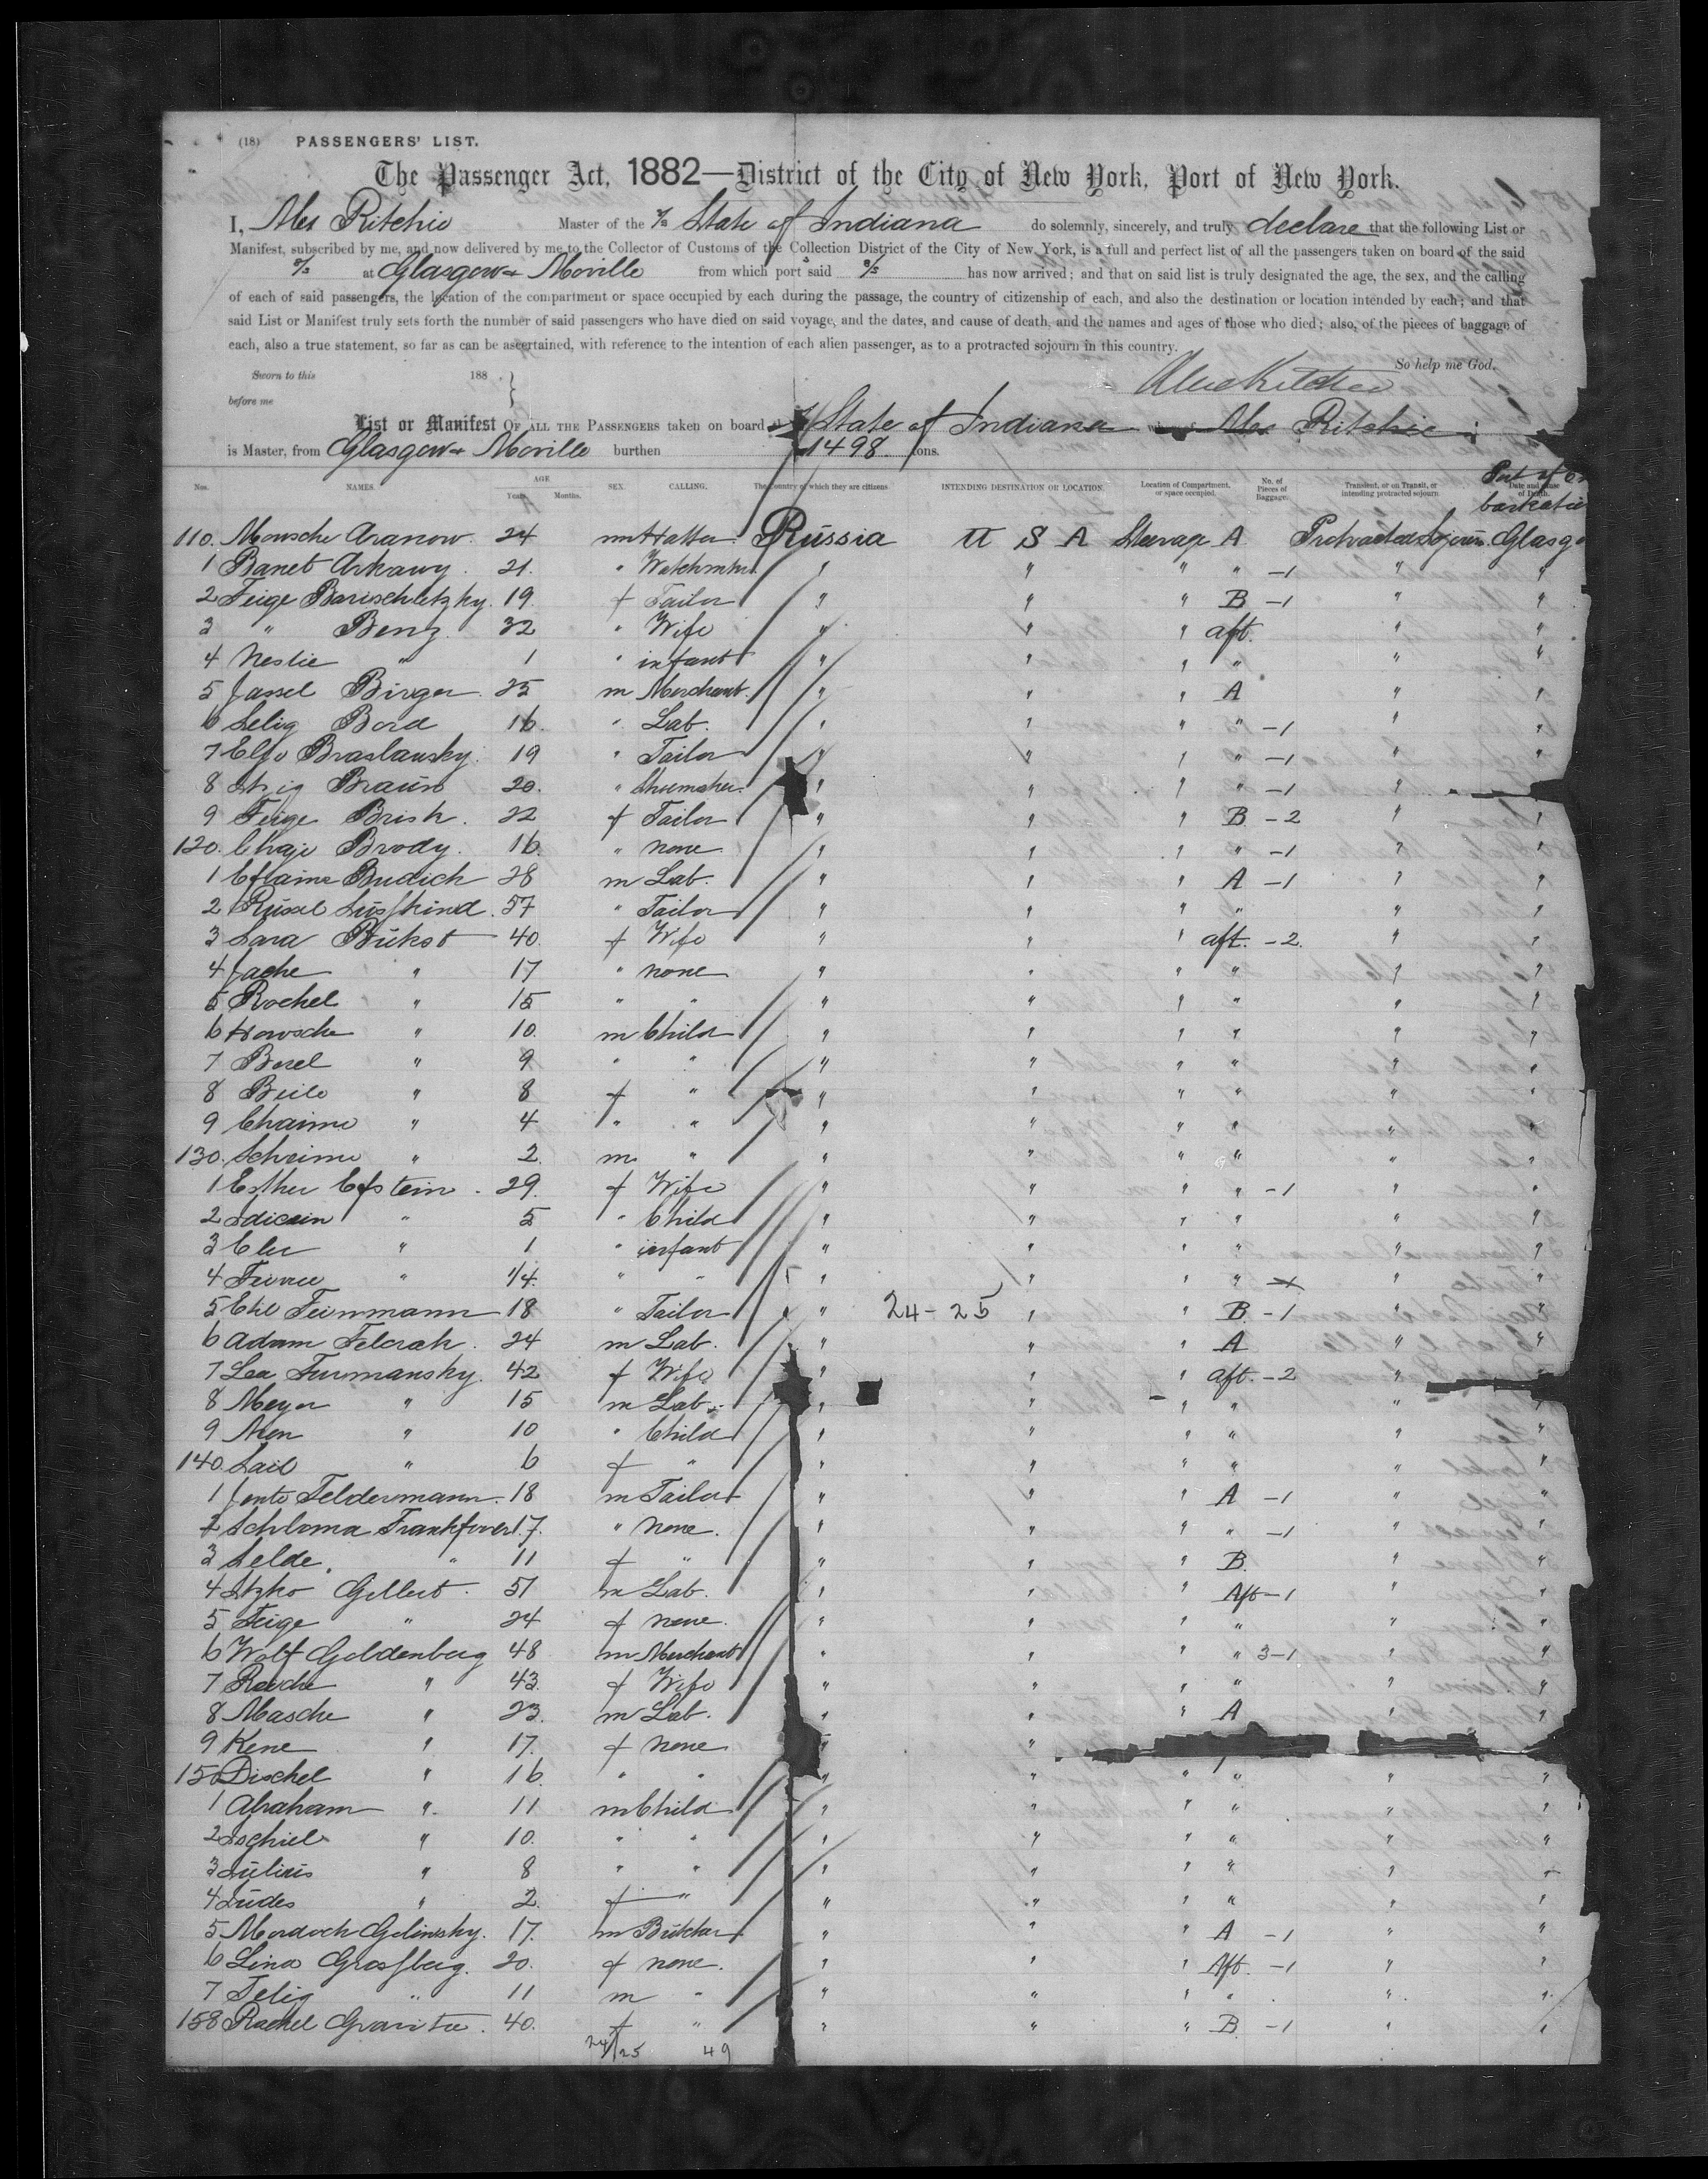 (18) PASSENGERS' LIST.
The Passenger Act, 1882—District of the City of New York, Port of New York.
I, Alex Ritchie Master of the S/s State of Indiana do solemnly, sincerely, and truly declare that the following List or
Manifest, subscribed by me, and now delivered by me to the Collector of Customs of the Collection District of the City of New York, is a full and perfect list of all the passengers taken on board of the said
S/s at Glasgow & Moville from which port said S/s has now arrived; and that on said list is truly designated the age, the sex, and the calling
of each of said passengers, the location of the compartment or space occupied by each during the passage, the country of citizenship of each, and also the destination or location intended by each; and that
said List or Manifest truly sets forth the number of said passengers who have died on said voyage, and the dates, and cause of death, and the names and ages of those who died; also, of the pieces of baggage of
each, also a true statement, so far as can be ascertained, with reference to the intention of each alien passenger, as to a protracted sojourn in this country.
So help me God.
Sworn to this 188
before me
Alex Ritchie
List or Manifest OF ALL THE PASSENGERS taken on board S/s State of Indiana Alex Ritchie
is Master, from Glasgow & Moville burthen 1498 tons.
Nos. NAMES. AGE Years. Months. SEX. CALLING. The Country of which they are citizens INTENDING DESTINATION OR LOCATION. Location of Compartment, or space occupied. No. of Pieces of Baggage. Transient, or on Transit, or intending protracted sojourn. Date and Cause of Death.
110. Mowsche Aranow. 24 m Hatter Russia U S A Steerage A Protracted Sojourn. Glasg
1 Banet Arkawy. 21. " Watchmkr. " " " " -1 " "
2 Feige Barischletzky. 19. f Tailor " " " B -1 " "
3 " Benz 32 " Wife " " " aft. " "
4 Neslie " 1 " infant " " " " " "
5 Jassel Birger. 25 m Merchant. " " " A " "
6 Selig Bord 16. " Lab. " " " " -1 " "
7 Eljo Braslawsky. 19 " Tailor " " " " -1 " "
8 Braun 20. " Shoemaker. " " " " -1 "
9 Feige Brish. 22 f Tailor " " " B - 2 " "
120. Chaje Brody. 16. " none " " " " -1 " "
1 Budich 28 m Lab. " " " A -1 " "
2 57 " Tailor " " " " " "
3 Sara Bukst 40. f Wife " " " aft. -2. " "
4 Jache " 17 " none " " " " " "
5 Rochel " 15 " " " " " " " "
6 Howsche " 10. m Child " " " " " "
7 Berel " 9 " " " " " " " "
8 Beile " 8 f " " " " " " "
9 Chaime " 4 " " " " " " " "
130. " 2. m " " " " " " "
1 Esther Epstein. 29. f Wife " " " " -1 " "
2 " 5 " Child " " " " " "
3 " 1 " infant " " " " " "
4 " 1/4. " " " " " " " "
5 Feinmann 18 " Tailor " 24-25 " " B -1 " "
6 Adam Felcrak. 24 m Lab. " " " A " "
7 Lea Furmansky. 42 f Wife " " " aft. -2 "
8 Meyer " 15 m Lab. " " " " " "
9 " 10 " Child " " " " " "
140. " 6 f " " " " " " "
1 Jente Feldermann. 18 m Tailor " " " A -1 " "
2 Schloma Frankfurer 17. " none. " " " " -1 " "
3 Selde. " 11 f " " " " B. " "
4 Itzko Gellert. 51 m Lab. " " " Aft -1 " "
5 Feige " 24 f none. " " " " " "
6 Wolf Goldenberg 48 m Merchant " " " " 3-1 " "
7 " 43. f Wife " " " " " "
8 Masche " 23. m Lab. " " " A " "
9 Kene " 17. f none " "
150 Dischel " 16. " " " " " " " "
1 Abraham " 11 m Child " " " " " "
2 " 10. " " " " " " " "
3 Julius " 8 " " " " " " "
4 Judes " 2. f " " " " " " "
5 Mordoch Golinsky. 17. m Butcher " " " A -1 " "
6 Lina Grossberg. 20. f none. " " " Aft. -1 " "
7 " 11 m " " " " " " "
158 Rachel 40. f " " " " B. -1 " "
24/25 49